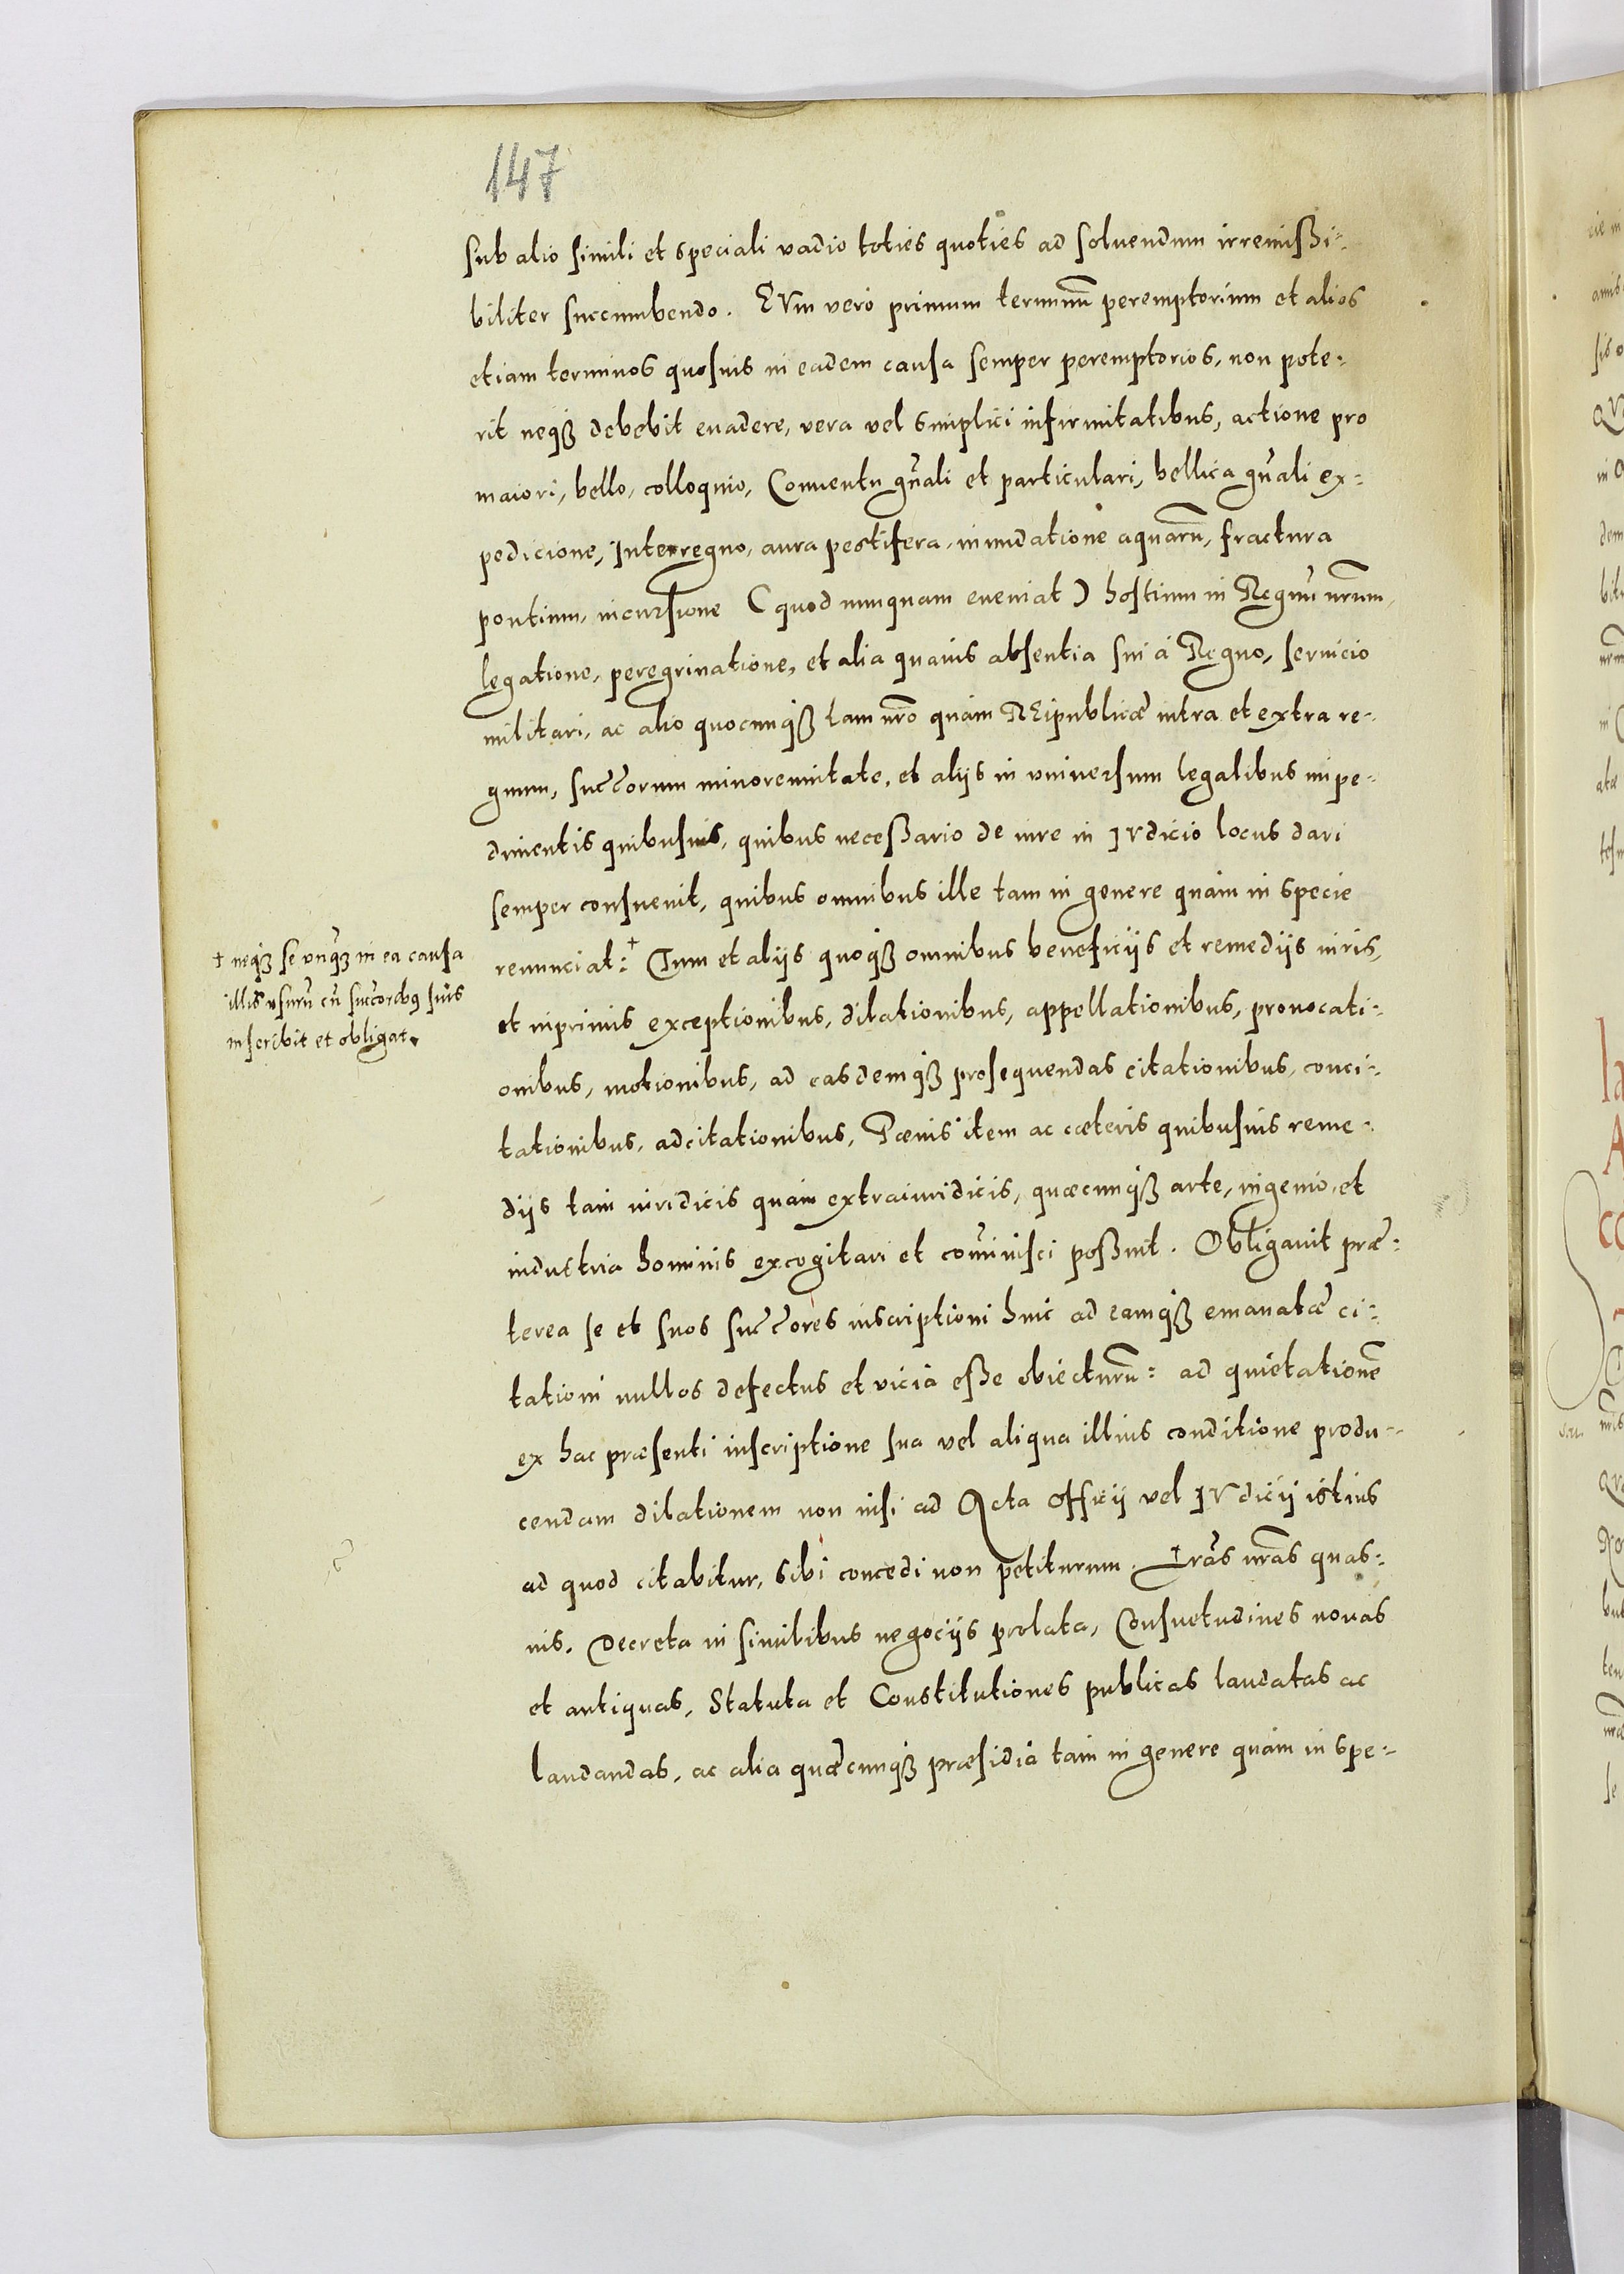 147
sub alio simili et speciali vadio toties quoties ad soluendum irremissi-
biliter succumbendo. EVm vero primum terminū peremptorium et alios
etiam terminos quosuis in eadem causa semper peremptorios, non pote-
rit neqȝ debebit euadere, vera vel simplici infirmitatibus, actione pro
maiori, bello, colloquio, Conuentu gn̄ali et particulari, bellica gn̄ali ex-
pedicione, Interregno, aura pestifera, inundatione aquarū, fractura
pontium, incursione (quod nunquam eueniat) hostium in Regnū nr̄um,
legatione, peregrinatione, et alia quauis absentia sui à Regno, seruicio
militari, ac alio quocunqȝ tam nr̄o quàm REipublicæ intra et extra re-
gnum, succ̄orum minorennitate, et alijs in vniuersum legalibus impe-
dimentis quibusuis, quibus necessario de iure in IVdicio locus dari
semper consueuit, quibus omnibus ille tam in genere quàm in specie
renunciat:† Tum et alijs quoqȝ omnibus beneficijs et remedijs iuris,
et inprimis exceptionibus, dilationibus, appellationibus, prouocati-
onibus, motionibus, ad easdemqȝ prosequendas citationibus, conci-
tationibus, adcitationibus, Pœnis item ac cæteris quibusuis reme-
dijs tam iuridicis quàm extraiuridicis, quæcunqȝ arte, ingenio, et
industria hominis excogitari et com̄inisci possunt. Obligauit præ-
terea se et suos succ̄ores inscriptioni huic ad eamqȝ emanatæ ci-
tationi nullos defectus et vicia esse obiecturū: ad quietationē
ex hac præsenti inscriptione sua vel aliqua illius conditione produ-
cendam dilationem non nisi ad Acta Officij vel IVdicij istius
ad quod citabitur, sibi concedi non petiturum. Lr̄as nr̄as quas-
uis. Decreta in similibus negocijs prolata, Consuetudines nouas
et antiquas, Statuta et Constitutiones publicas laudatas ac
laudandas, ac alia quæcunqȝ præsidia tam in genere quàm in spe-
† neqȝ se vnqȝ in ea causa
illis vsurū cū succ̄oribꝰ suis
inscribit et obligat.